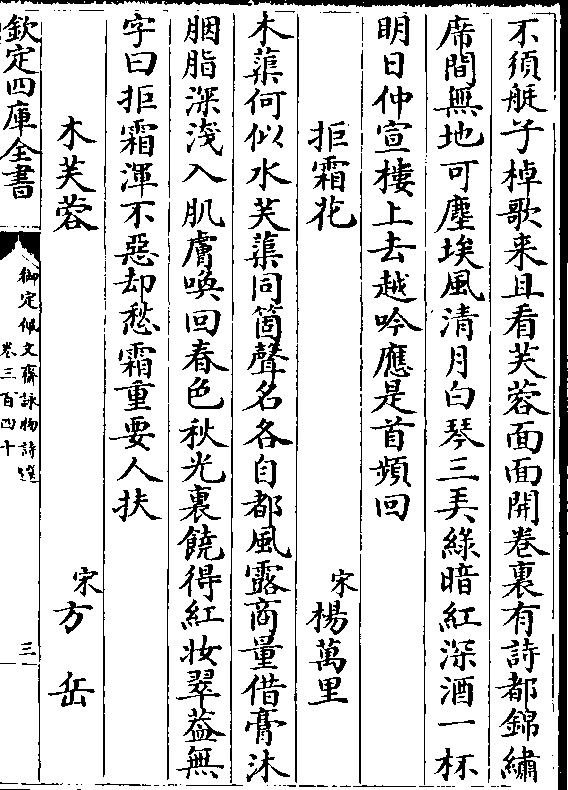 不須艇子棹歌来且看芙蓉面面開卷裏有詩都錦繡
席間無地可塵埃風清月白琴三弄綠暗紅深酒一杯
明日仲宣樓上去越吟應是首頻回
拒霜花
宋楊萬里
木蕖何似水芙蕖同箇聲名各自都風露商量借膏沐
胭脂深淺入肌膚喚回春色秋光裏饒得紅妝翠葢無
字曰拒霜渾不惡却愁霜重要人扶
木芙蓉
宋方岳
欽定四庫全書
御定佩文齋詠物詩選
卷三百四十
三